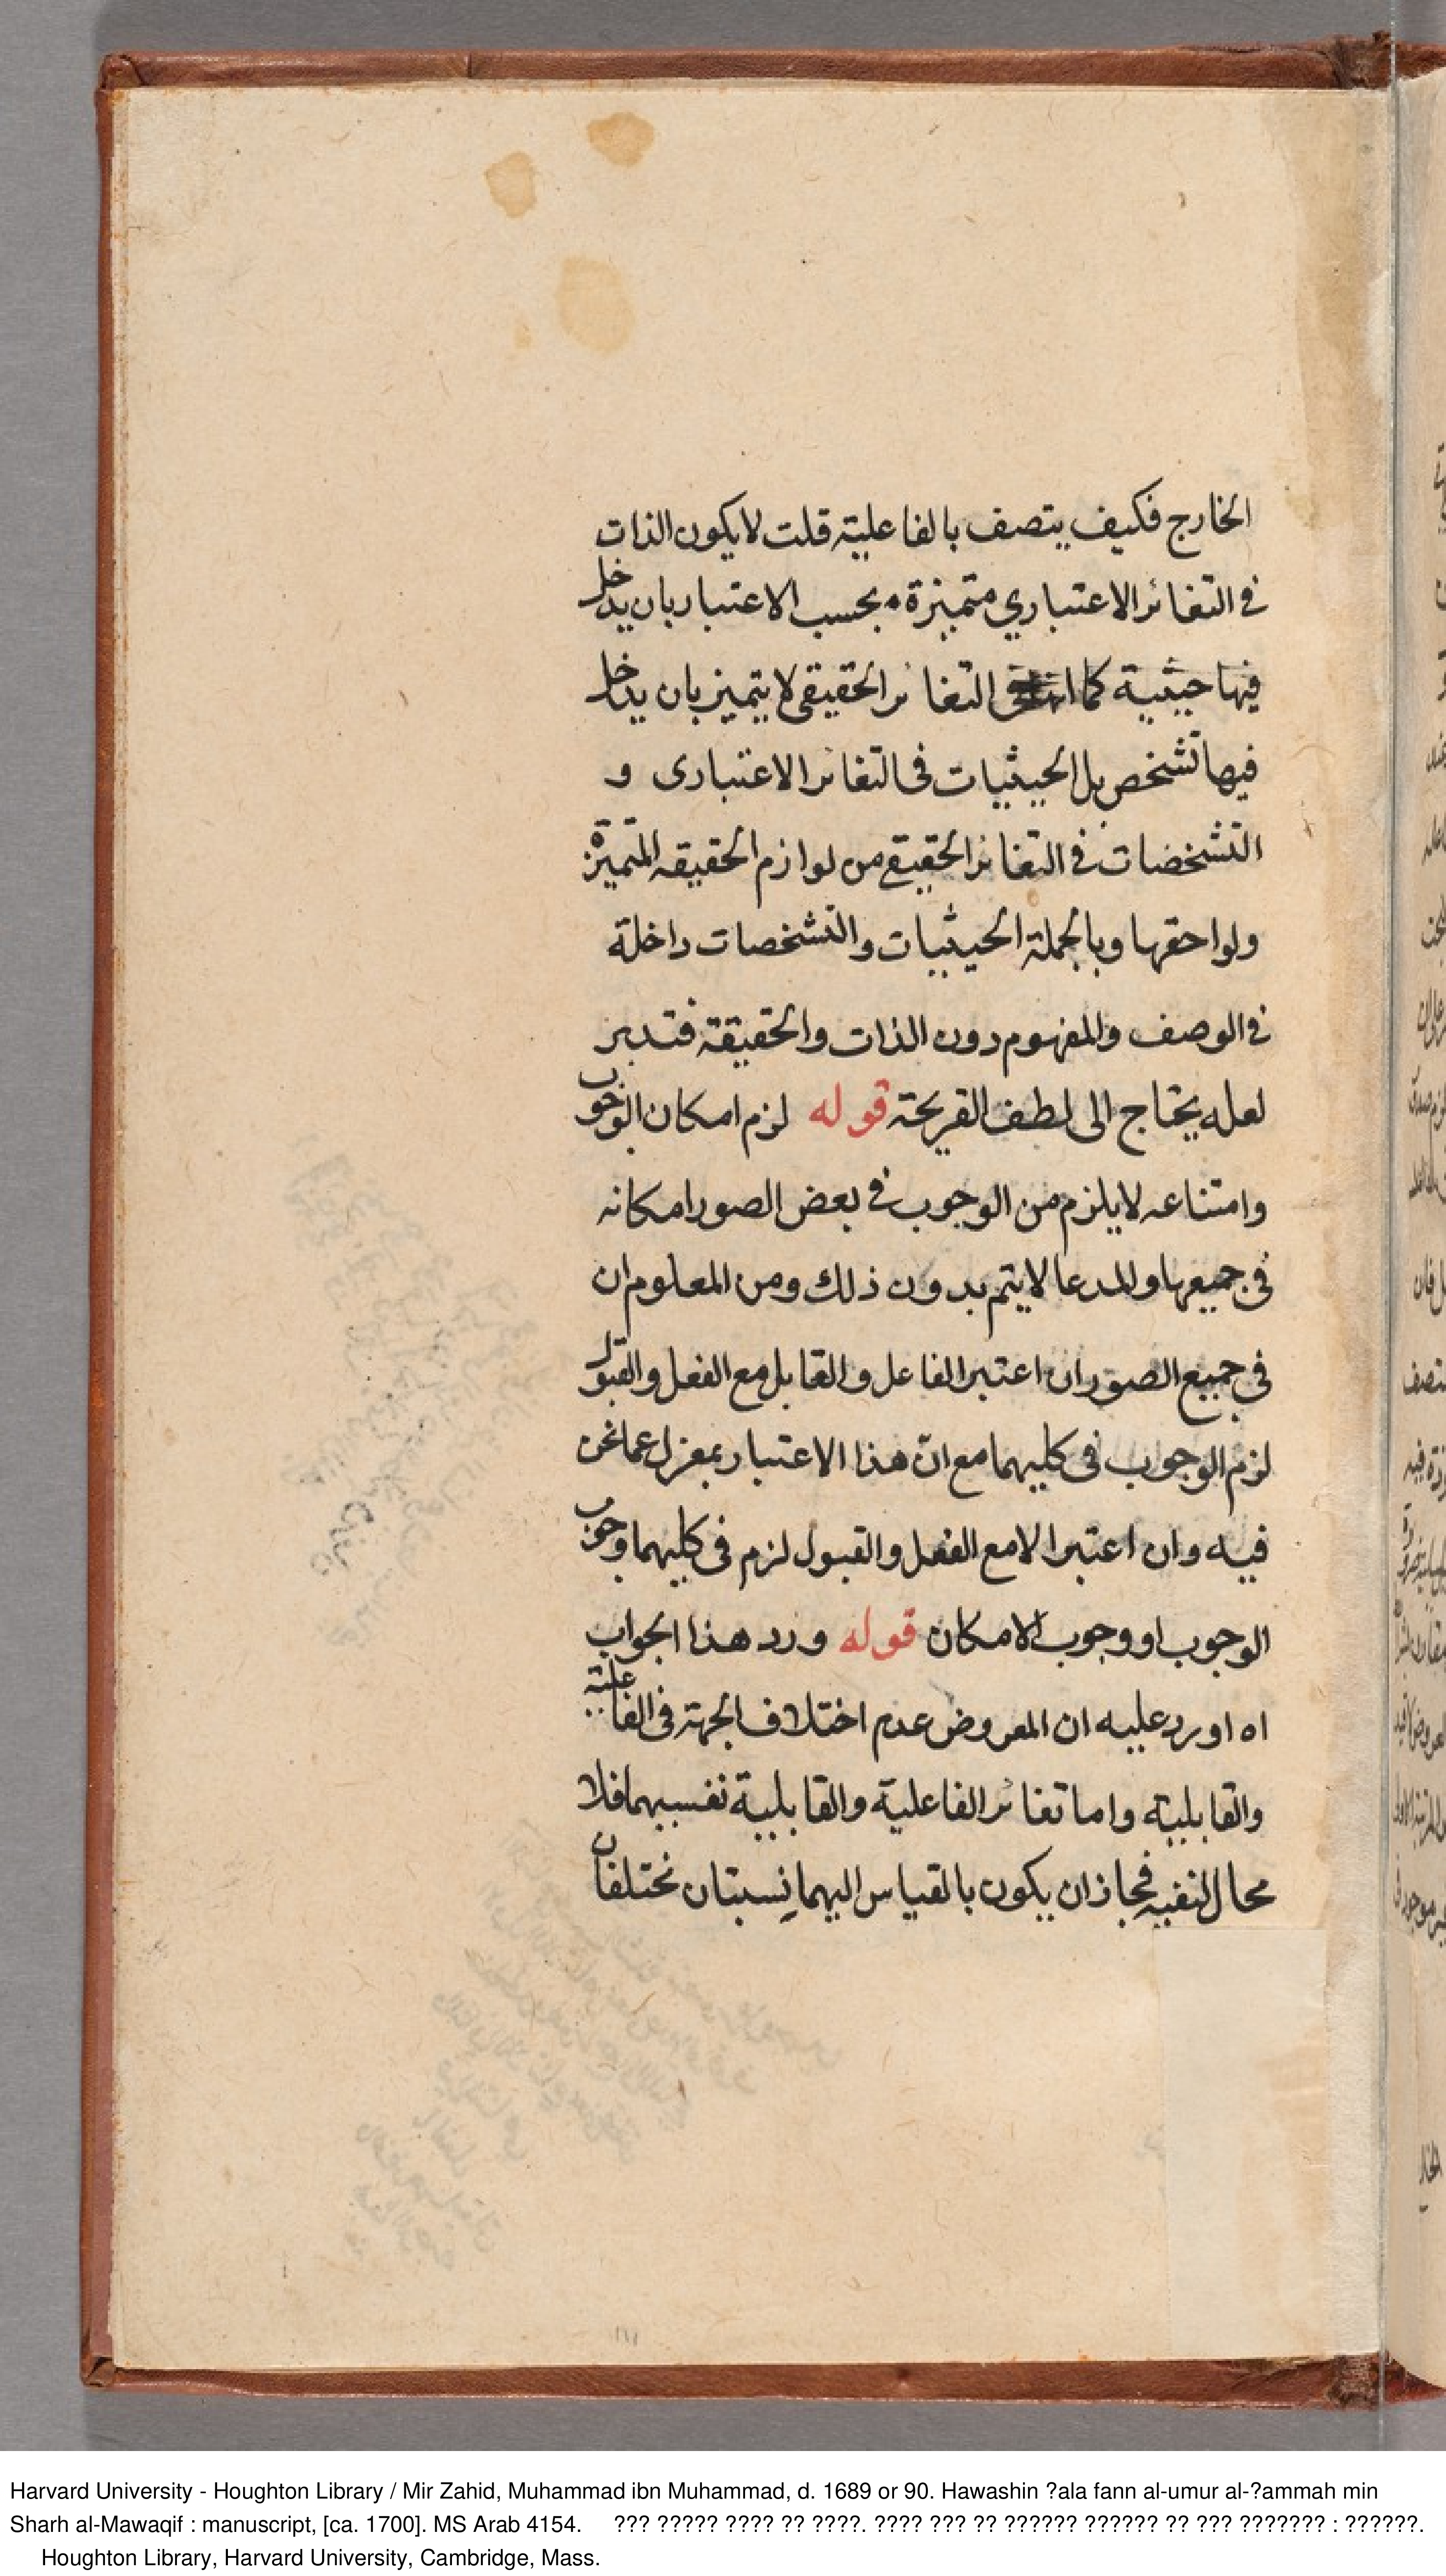 الخارج فكيف يتصف بالفاعلية قلت لا يكون الذات
في التغائر الاعتباري متميزة بحسب الاعتبار بان يدخل
فيها حيثية كما التغائر الحقيقي لا يتميز بان يدخل
فيها تشخص بل الحيثيات في التغائر الاعتبارى و
التشخضات في التغائر الحقيقي من لوازم الحقيقه المتميزة
ولواحقها وبالجملة الحيثيات والتشخصات داخلة
في الوصف والمفهوم دون الذات والحقيقة فتدبر
لعله يحتاج الى لطف القريحة قوله لزم امكان الوجوب
وامتناعه لا يلزم من الوجوب في بعض الصور امكانه
في جميعها والمدعا لا يتم بدون ذلك ومن المعلوم ان
في جميع الصور ان اعتبر الفاعل والقابل مع الفعل والقبول
لزم الوجوب في كليهما مع ان هذا الاعتبار بمعزل عما نحن
فيه وان اعتبرا لا مع الفعل والقبول لزم في كليهما وجوب
الوجوب او وجوب الامكان قوله ورد هذا الجواب
اه اورد عليه ان المعروض عدم اختلاف الجهة في الفاعلية
والقابلية واما تغائر الفاعلية والقابلية نفسيهما فلا
محال لنفيه فجاز ان يكون بالقياس اليهما نسبتان مختلفان
Harvard University - Houghton Library / Mir Zahid, Muhammad ibn Muhammad, d. 1689 or 90. Hawashin ?ala fann al-umur al-?ammah min
Sharh al-Mawaqif : manuscript, [ca. 1700]. MS Arab 4154. ??? ????? ???? ?? ????. ???? ??? ?? ?????? ?????? ?? ??? ??????? : ??????.
Houghton Library, Harvard University, Cambridge, Mass.